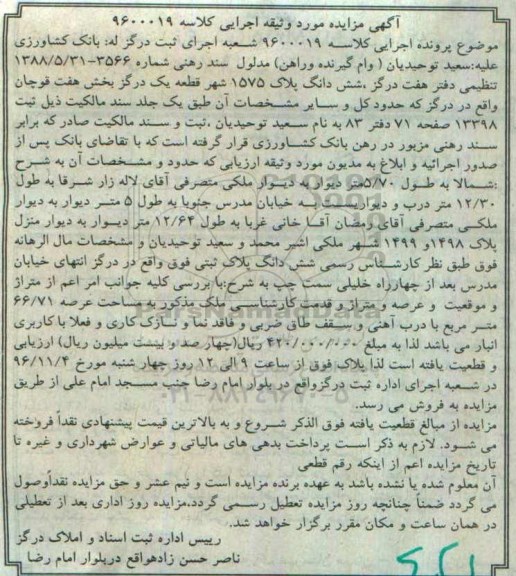 آگهی مزایده مورد وثیقه اجرایی کلاسه ۹۶۰۰۰۱۹
موضوع پرونده اجرایی کلاســه ۹۶۰۰۰۱۹ شـعبه اجرای ثبت درگز له: بانک کشاورزی
علیه:سعید توحیدیان ( وام گیرنده وراهن) مدلول سند رهنی شماره ۳۵۶۶-۱۳۸۸/۵/۳۱
تنظیمی دفتر هفت درگز ،شش دانگ پلاک ۱۵۷۵ شهر قطعه یک درگز بخش هفت قوچان
واقع در درگز که حدود کل و سـایر مشـخصات آن طبق یک جلد سند مالکیت ذیل ثبت
۱۳۳۹۸ صفحه ۷۱ دفتر ۸۳ به نام سـعید توحیدیان ،ثبت و سـند مالکیت صادر که برابر
سـند رهنی مزبور در رهن بانک کشـاورزی قرار گرفته است که با تقاضای بانک پس از
صدور اجرائیه و ابلاغ به مدیون مورد وثیقه ارزیابی که حدود و مشـخصات آن به شـرح
:شـمالا به طـول ۵/۷۰متر دیوار به دیـوار ملکی متصرفی آقای لاله زار شـرقا به طول
۱۲/۳۰ متر درب و دیوار به خیابان مدرس جنوبا به طول ۵ متـر دیوار به دیوار
ملکـی متصرفی آقای رمضان آقـا خانی غربا به طول ۱۲/۶۴ متر دیـوار به دیوار منزل
پلاک ۱۴۹۸و ۱۴۹۹ شـهر ملکی اشیر محمد و سعید توحیدیان و مشخصات مال الرهانه
فوق طبق نظر کارشـناس رسمی شش دانگ پلاک ثبتی فوق واقع در درگز انتهای خیابان
مدرس بعد از چهارراه خلیلی سمت چپ به شرح:با بررسی کلیه جوانب امر اعم از متراژ
و موقعیت و عرصه و متراژ و قدمت کارشناسـی ملک مذکور به مساحت عرصه ۶۶/۷۱
متـر مربع با درب آهنی و سـقف طاق ضربی و فاقد نما و نـازک کاری و فعلا با کاربری
انبار می باشد لذا به مبلغ ۴۲۰/۰۰۰/۰۰۰ ریال(چهار صد و بیست میلیون ریال) ارزیابی
و قطعیت یافته است لذا پلاک فوق از ساعت ۹ الی ۱۲ روز چهار شنبه مورخ ۹۶/۱۱/۴
در شـعبه اجرای اداره ثبت درگزواقع در بلوار امام رضا جنب مسجد امام علی از طریق
مزایده به فروش می رسد.
مزایده از مبالغ قطعیت یافته فوق الذکر شـروع و به بالاترین قیمت پیشنهادی نقداً فروخته
می شـود. لازم به ذکر اسـت پرداخت بدهی های مالیاتی و عوارض شهرداری و غیره تا
تاریخ مزایده اعم از اینکه رقم قطعی
آن معلوم شده یا نشده باشد به عهده برنده مزایده است و نیم عشر و حق مزایده نقداًوصول
می گردد ضمناً چنانچه روز مزایده تعطیل رسـمی گردد،مزایده روز اداری بعد از تعطیلی
در همان ساعت و مکان مقرر برگزار خواهد شد.
رییس اداره ثبت اسناد و املاک درگز
ناصر حسن زادهواقع دربلوار امام رضا
ParsNamadData
۰۲۱-۸۸۳۴۹۶۷۰-۵